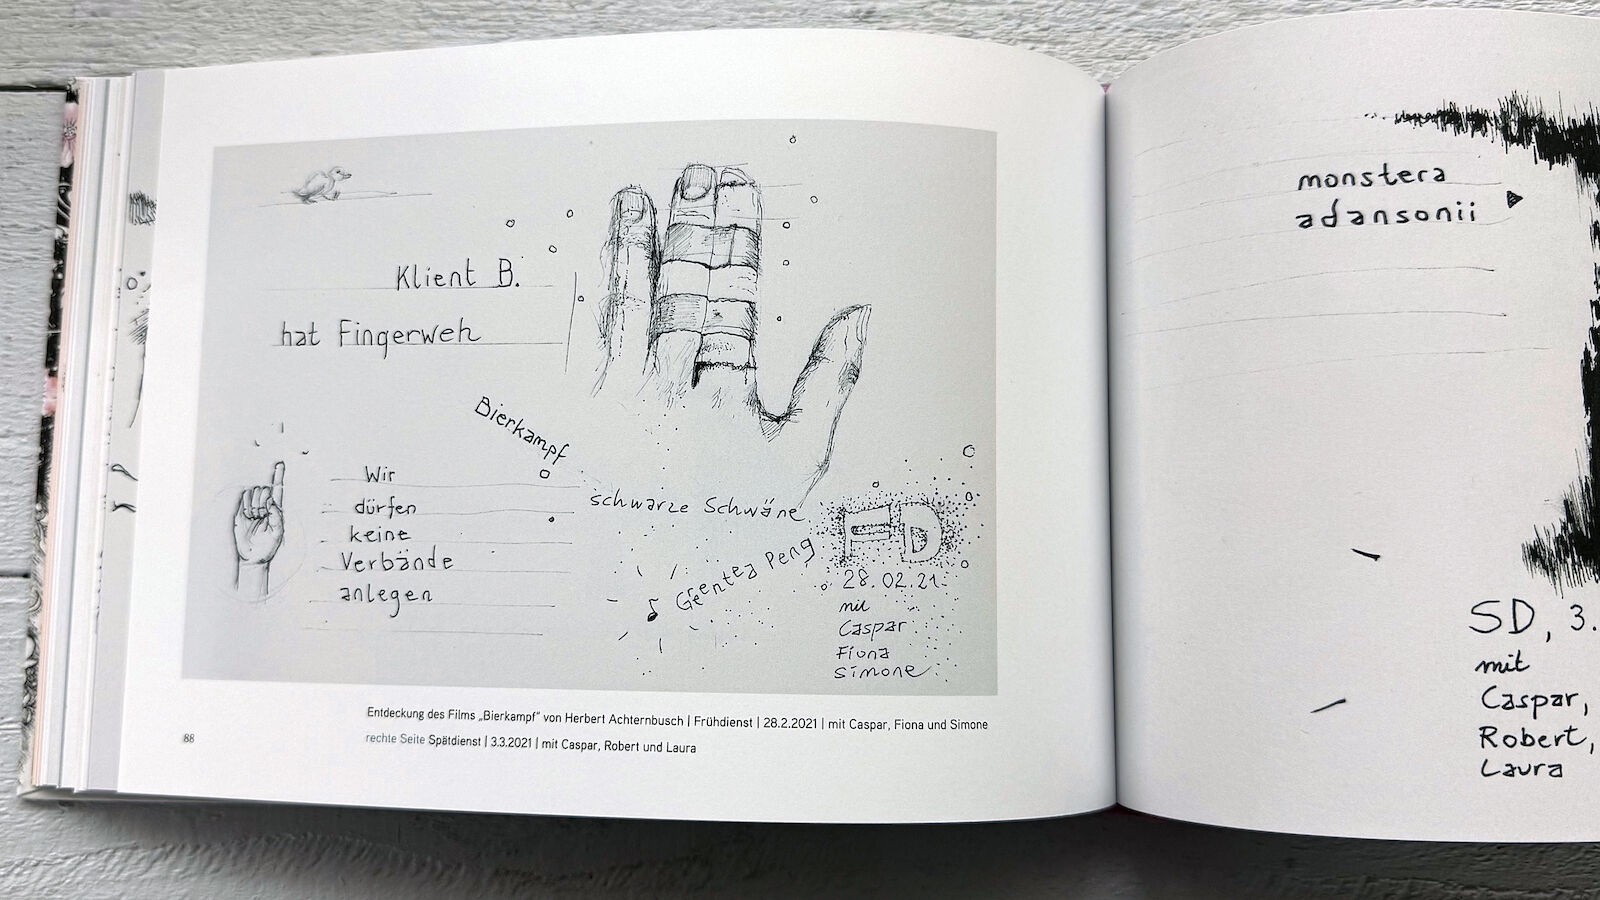 Klient B.
hat Fingerweh
Bierkampf
Wir
dürfen
keine
Verbände
anlegen
schwarze Schwäne
Greentea Peng
FD
28.02.21
mit
Caspar
Fiona
Simone
Entdeckung des Films „Bierkampf“ von Herbert Achternbusch | Frühdienst | 28.2.2021 | mit Caspar, Fiona und Simone
rechte Seite Spätdienst | 3.3.2021 | mit Caspar, Robert und Laura
88
monstera
adansonii
SD, 3.
mit
Caspar,
Robert,
Laura